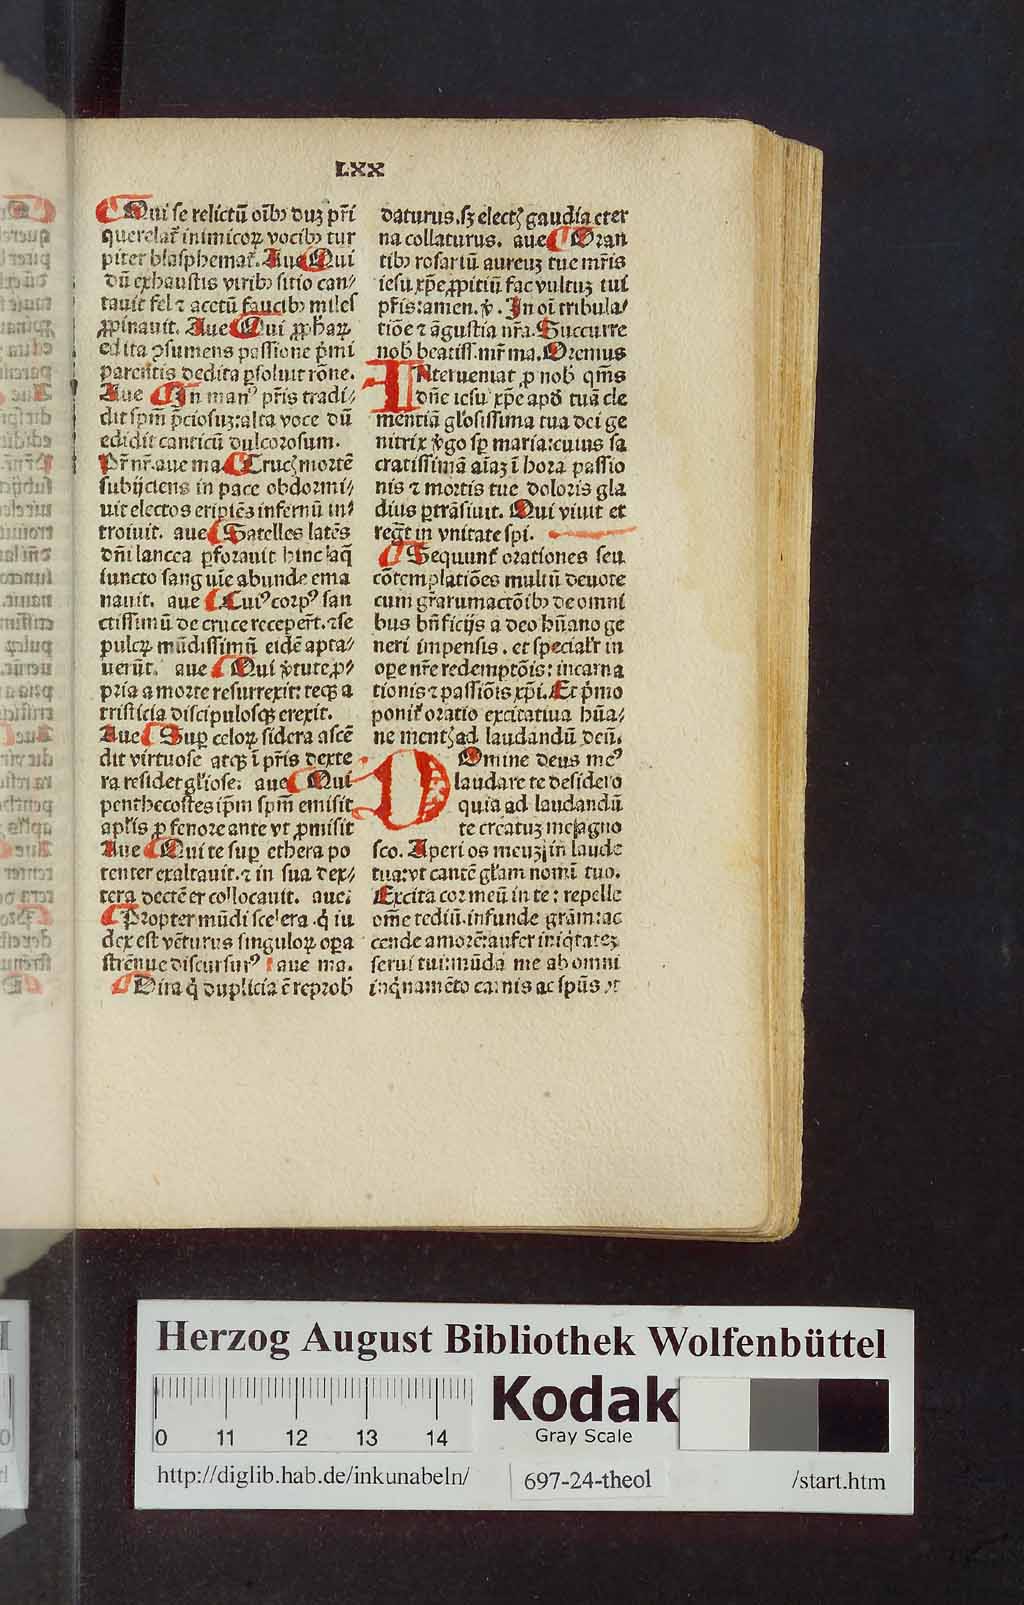 LXX
Qui se relictū oīb⁹ duz pr̄i
querelat᷑ inimicoꝝ vocib⁹ tur
piter blasphemat᷑. Aue Qui
dū exhaustis virib⁹ sitio can⸗
tauit fel ⁊ acetū faucib⁹ miles
ꝓpinauit. Aue Qui
edita ꝯsumens passione p̄mi
parentis dedita ꝑsoluit rōne.
Aue In man⁹ pr̄is tradi⸗
dit spm̄ p̄ciosuz: alta voce dū
edidit canticū dulcorosum.
Pr̄ nr̄. aue ma Cruc mortē
subijciens in pace obdormi⸗
uit electos eripiēs infernū in⸗
troiuit. aue Satelles latēs
dn̄i lancea ꝑforauit hinc aq̄
iuncto sanguīe abunde ema
nauit. aue Cui⁹ corp⁹ san
ctissimū de cruce receper̄t. ⁊ se
pulcꝝ mūdissimū eidē apta⸗
uerūt. aue Qui v̄tute ꝓ⸗
pria a morte resurrexit: teqꝫ a
tristicia discipulosqꝫ erexit.
Aue Suꝑ celoꝝ sidera ascē
dit virtuose atqꝫ ī pr̄is dexte
ra residet gl̄iose: aue Qui
penthecostes ip̄m spm̄ emisit
apl̄is ꝓ fenore ante vt ꝓmisit
Aue Qui te suꝑ ethera po
tenter exaltauit. ⁊ in sua dex⸗
tera decēter collocauit. aue:
Propter mūdi scelera. q̇ iu
dex est vēturus singuloꝝ oꝑa
strēnue discursur⁹ aue ma.
Dira q̇ duplicia ē reprob
daturus. sꝫ elect gaudia eter
na collaturus. aue Oran
tib⁹ rosariū aureuꝫ tue mr̄is
iesu xp̄e ꝓpitiū fac vultuꝫ tui
pr̄is: amen. v̄. In oī tribula⸗
tiōe ⁊ āgustia nr̄a. Succurre
nob beatiss. mr̄ ma. Oremus
INterueniat ꝓ nob qm̄s
dn̄e iesu xp̄e apd̄ tuā cle
mentiā gl̄osissima tua dei ge
nitrix v̄go sꝑ maria: cuius sa
cratissimā aīaꝫ ī hora passio
nis ⁊ mortis tue doloris gla
dius ꝑtrāsiuit. Qui viuit et
regt̄ in vnitate spi.
Sequunt᷑ orationes seu
cōtemplatiōes multū deuote
cum gr̄arumactōib⁹ de omni
bus bn̄ficijs a deo hūano ge
neri impensis. et specialr̄ in
oꝑe nr̄e redemptōis: incarna
tionis ⁊ passiōis xp̄i. Et p̄mo
ponit᷑ oratio excitatiua hūa⸗
ne ment ad laudandū deū.
DOmine deus me⁹
laudare te desidero
quia ad laudandū
te creatuꝫ me agno
sco. Aperi os meuꝫ in laude
tua: vt cantē gl̄am nomī tuo.
Excita cor meū in te: repelle
om̄e tediū. infunde grām: ac
cende amorē: aufer iniq̇tateꝫ
serui tui: mūda me ab omni
inq̇namēto carnis ac spūs vt
Herzog August Bibliothek Wolfenbüttel
0 11 12 13 14
Kodak
Gray Scale
http://diglib.hab.de/inkunabeln/
697-24-theol
/start.htm